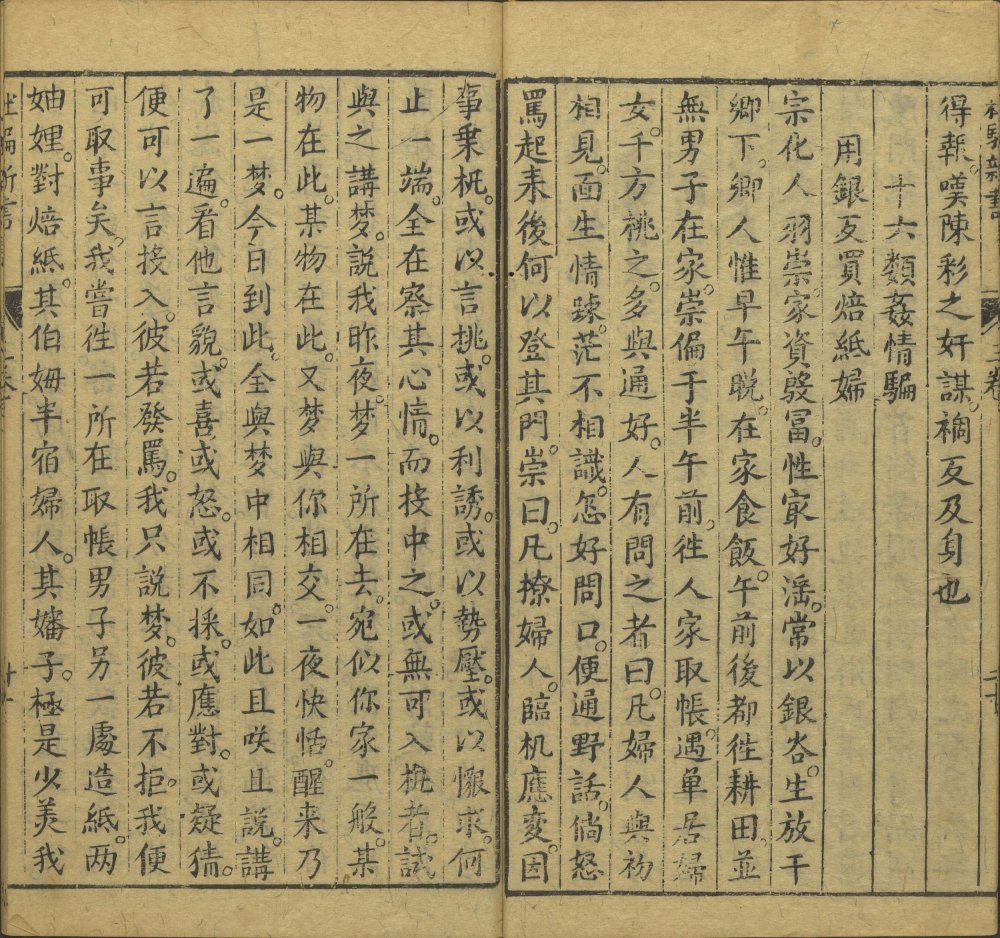 得報。嘆陳彩之奸謀。禍反及身也
十六類姦情騙
用銀反買焙紙婦
宗化人羽崇。家資殷冨。性㝡好滛。常以銀谷。生放于
郷下。郷人惟早午晚。在家食飯。午前後都徃耕田。並
無男子在家。崇偏于半午前。徃人家取帳。遇单居婦
女。千方挑之。多與通好。人有問之者曰。凡婦人與初
相見。面生情踈。茫不相識。怎好問口。便通野話。倘怒
罵起来後何以登其門。崇曰。凡撩婦人。臨机應变。因
事乗机。或以言挑。或以利誘。或以勢壓。或以懇求。何
止一端。全在察其心情。而投中之。或無可入机者。試
與之講梦。說我昨夜。梦一所在去。宛似你家一般。某
物在此。某物在此。又梦與你相交。一夜快恬。醒来乃
是一梦。今日到此。全與梦中相同。如此且咲且說。講
了一遍。看他言貌。或喜或怒。或不採。或應對。或疑猜。
便可以言投入。彼若發罵。我只説梦。彼若不拒。我便
可取事矣。我嘗徃一所在取帳男子另一處造紙。两
妯娌。對焙紙。其伯姆半宿婦人。其嬸子。極是少美我